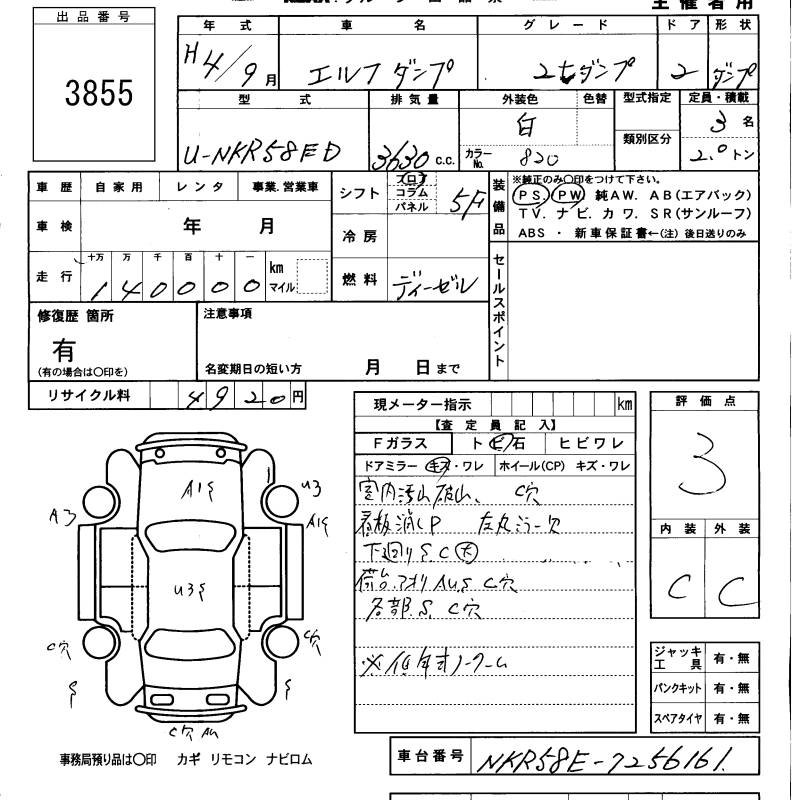 主催者用
出品番号
3855
年式 車名 グレード ドア 形状
H4/9月 エルフダンプ 2tダンプ 2 ダンプ
型式 排気量 外装色 色替 型式指定 定員・積載
U-NKR58ED 3630 c.c. 白 3名
カラーNo. 820 類別区分 2.0トン
車歴 自家用 レンタ 事業.営業車
シフト フロア コラム パネル 5F
装備品
※純正のみ〇印をつけて下さい。
PS. PW. 純AW. AB(エアバック)
TV. ナビ. カワ. SR(サンルーフ)
ABS ・ 新車保証書←(注) 後日送りのみ
車検 年 月
冷房
走行 十万 万 千 百 十 一
140000 km マイル
燃料 ディーゼル
セールスポイント
修復歴 箇所
有
(有の場合は〇印を)
注意事項
名変期日の短い方 月 日まで
リサイクル料 4920円
現メーター指示 km
【査定員記入】
Fガラス トビ石 ヒビワレ
ドアミラー キズ・ワレ ホイール(CP) キズ・ワレ
室内汚れ破れ、 C穴
看板消しP 左丸ミラー欠
下廻りS.C大
荷台.アオリAUS C穴
各部.S. C穴
※低年式ノークレーム
評価点
3
内装 外装
C C
A1S
U3
A3
A1S
U3S
C穴
C穴
S
S
C穴 AU
ジャッキ工具 有・無
パンクキット 有・無
スペアタイヤ 有・無
事務局預り品は〇印 カギ リモコン ナビロム
車台番号 NKR58E-7256161